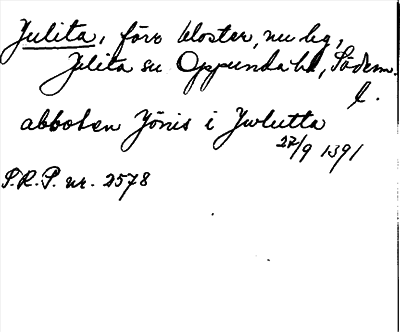 Julita, förr kloster, nu hg,
Julita sn Oppunda hd, Södem.
l.
abboten Jönis i Jwlutta
27/9 1391
S.R.P. nr. 2578